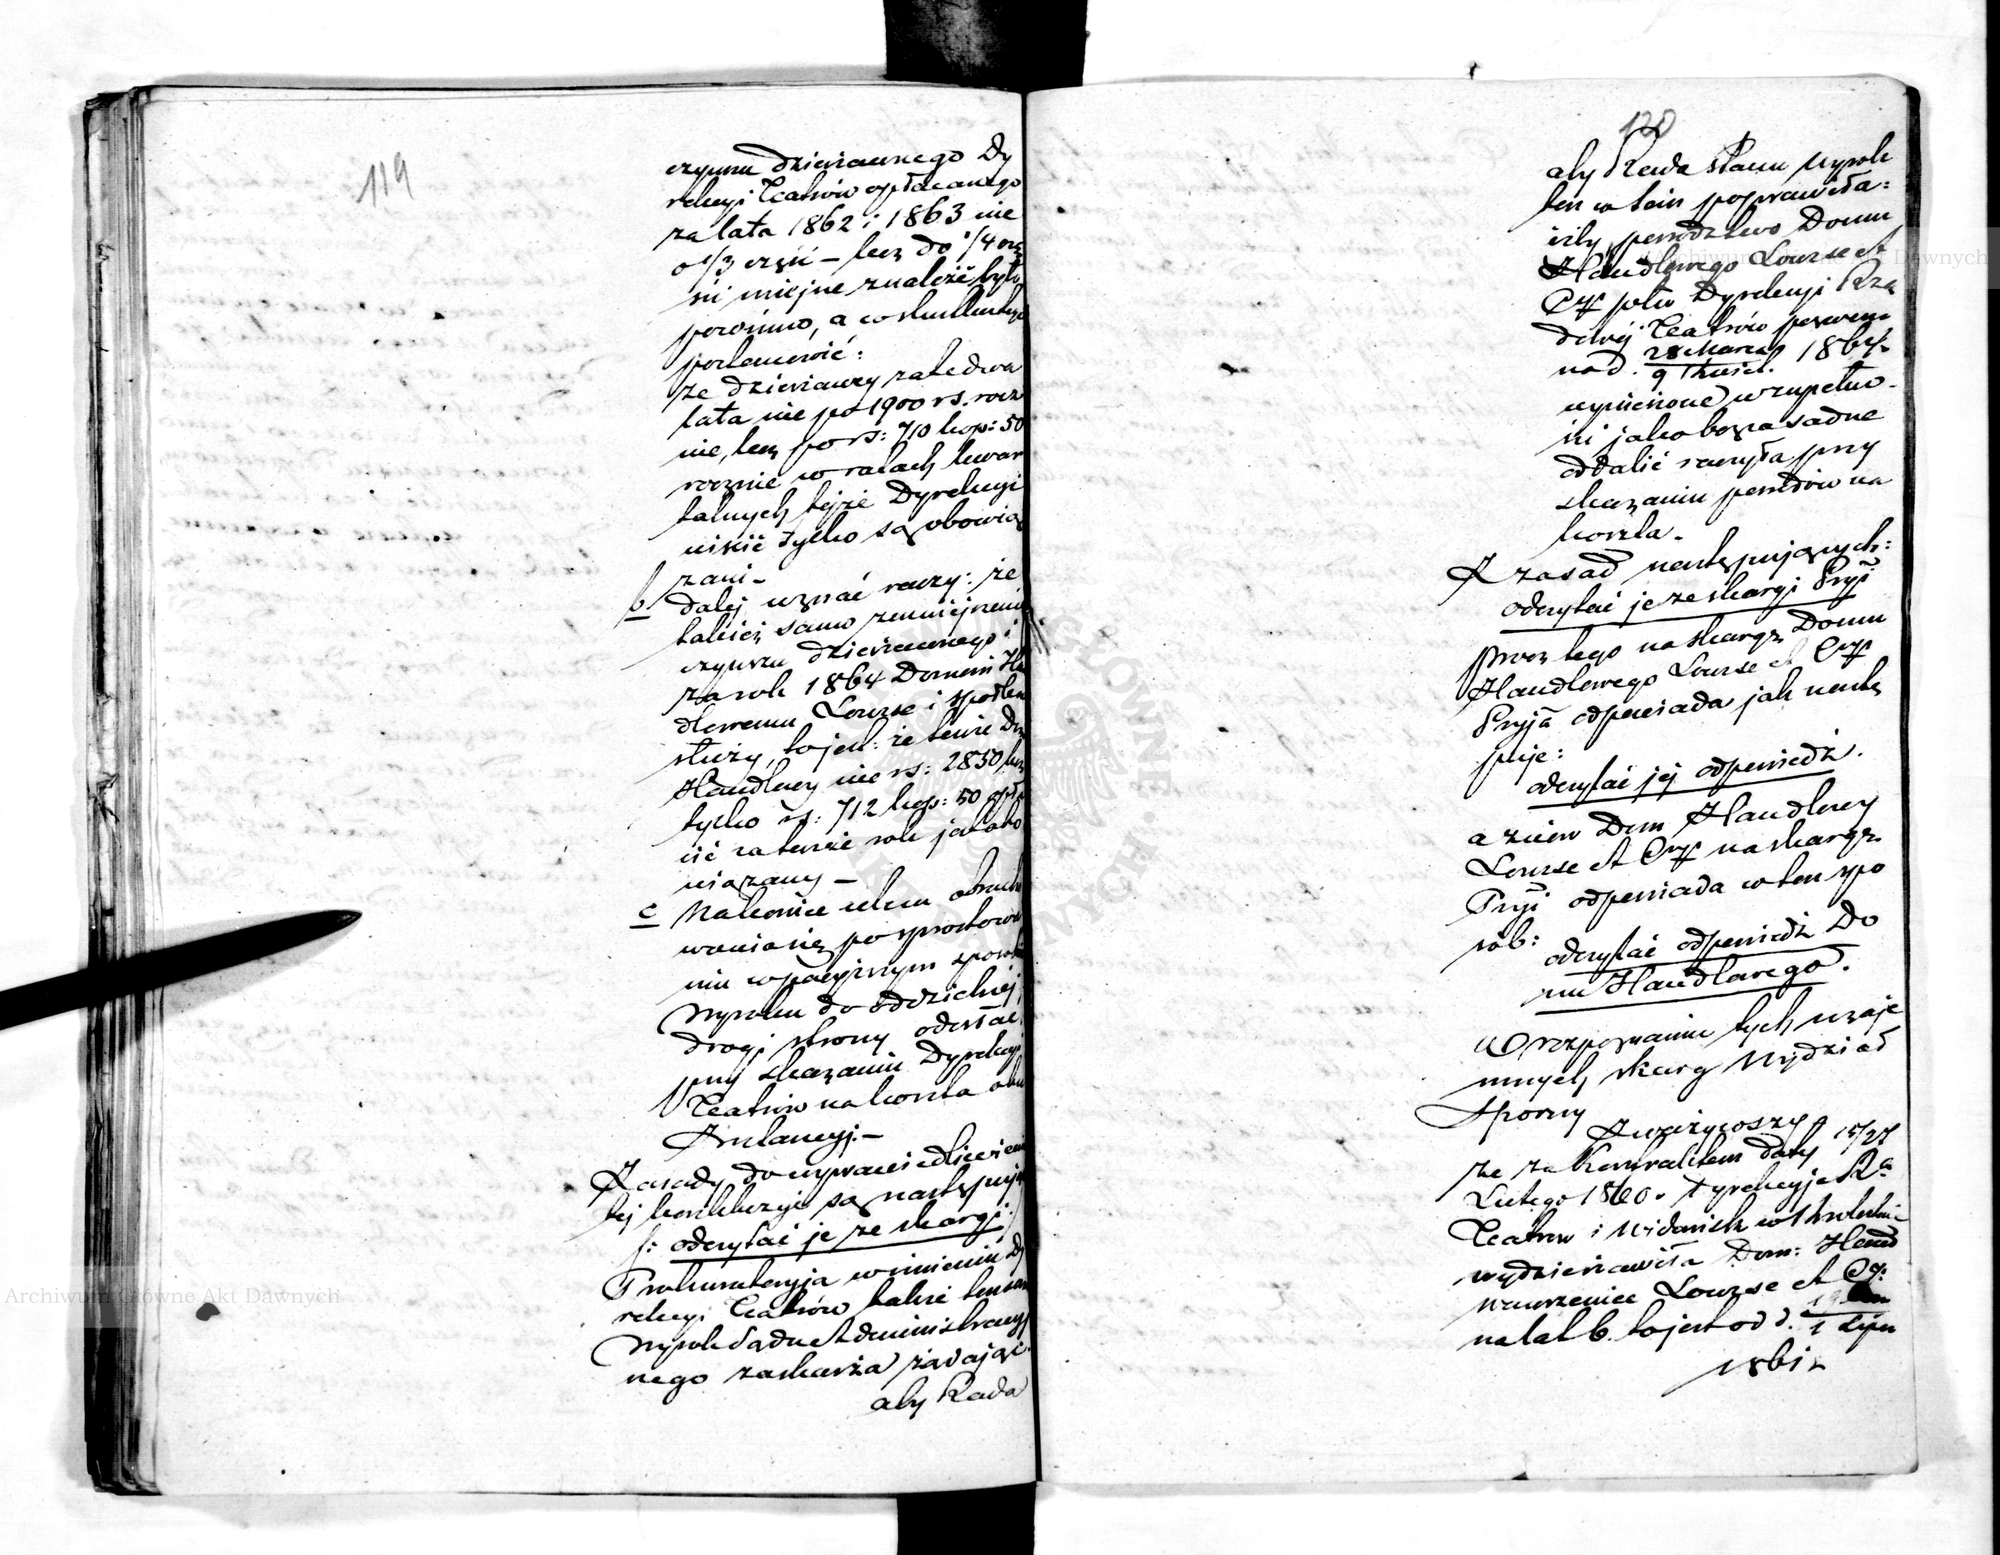 119
czynszu dzierżawnego Dy
rekcyi Teatrów opłacanego
za lata 1862 i 1863 nie
o 1/3 część – lecz do 1/4 czę
ści miejsce znaleźć było
powinno, a w skutku tego
postanowić:
że dzierżawy za te dwa
lata nie po 1900 rs. rocz
nie, lecz po rs: 710 kop: 50
rocznie w ratach kwar
talnych tejże Dyrekcyi
uiścić tylko są obowią
zani –
b dalej uznać raczy: że
takież samo zmniejszenie
czynszu dzierżawnego i
za rok 1864 Domowi Ha
dlowemu Lourse i spółka
służy, to jest: że tenże Dom
Handlowy nie rs: 2850 lecz
tylko rs: 712 kop: 50 opła
cić za tenże rok jest obo
wiązany –
c Nakoniec celem obracho
wania się po sprostowa
niu w powyższym sposobie
Wyroku do oddzielnej
drogi strony odesłać
przy skazaniu Dyrekcyi
Teatrów na koszta obu
Instancyj. –
Zasady do usprawiedliwienia
tej konkluzyi są następują
/: odczytać je ze skargi :/
Prokuratorya w imieniu Dy
rekcyi Teatrów także tenże
Wyrok Sądu Administracyj
nego zaskarża żądając
aby Rada
120
aby Rada Stanu Wyrok
ten w tem poprawiła:
iżby powództwo Domu
Handlowego Lourse et
Cp. pko Dyrekcyi Rzą
dowej Teatrów pozwem
na d. 28 Marca / 9 Kwiet. 1864 r.
wyniesione w zupełno
ści jako bezzasadne
oddalić raczyła przy
skazaniu powodów na
koszta –
Z zasad następujących:
odczytać je ze skargi Pryi
Prócz tego na skargę Domu
Handlowego Lourse et Cp.
Pryja odpowiada jak nastę
puje:
odczytać jej odpowiedź.
a znów Dom Handlowy
Lourse et Cp. na skargę
Pryi odpowiada w ten spo
sób:
odczytać odpowiedź Do
mu Handlowego.
W rozpoznaniu tych wzaje
mnych skarg Wydział
Sporny
Zważywszy
że za Kontraktem daty 15/27
Lutego 1860 r. Dyrekcyja Rzą
Teatrów i Widowisk w Królestwie
wydzierżawiła Dom: Hand
Wawrzeniec Lourse et Cp:
na lat 6. to jest od d. 1 Lipca
1861 r.